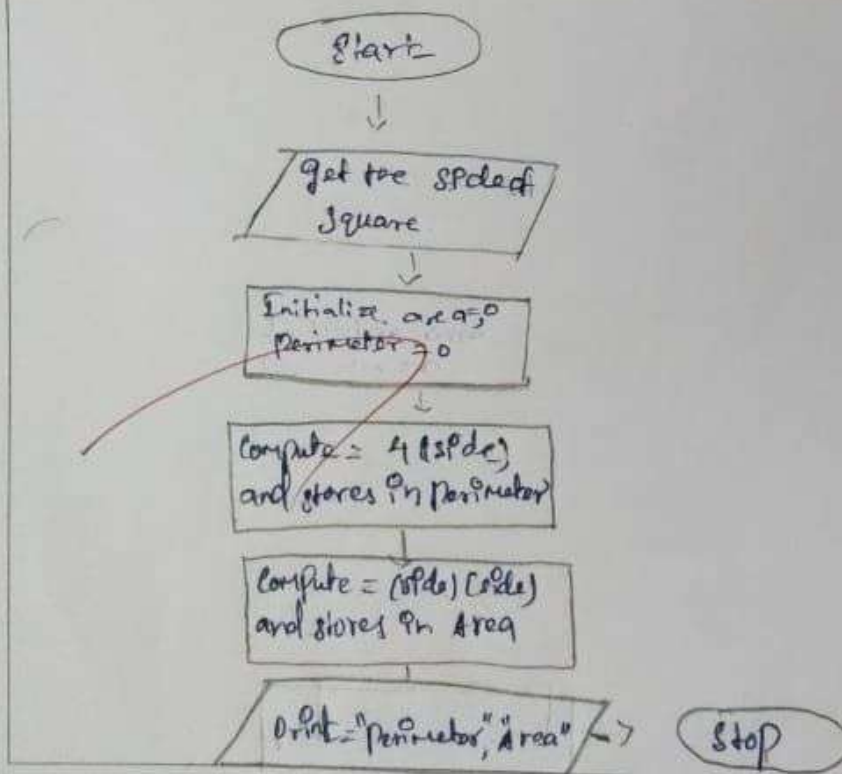 Start
Get the side of
Square
Initialize area=0,
perimeter=0
Compute = 4(side)
and stores in perimeter
Compute = (side)(side)
and stores in Area
Print="perimeter","Area"
Stop